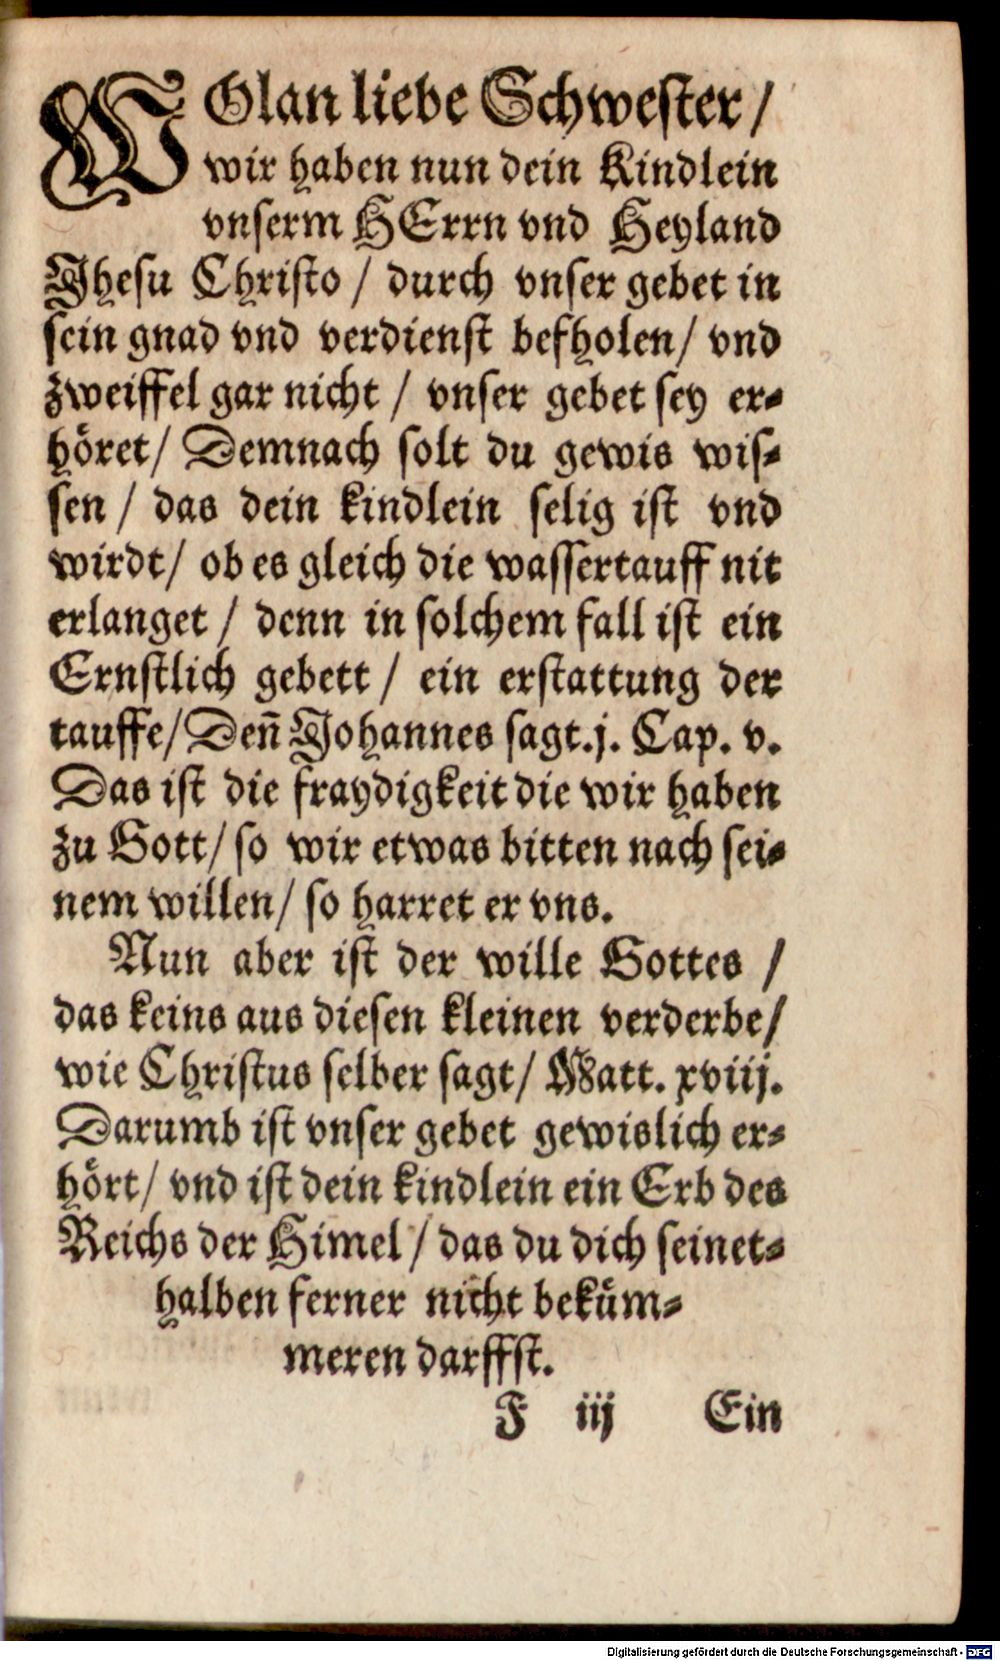 WOlan liebe Schwester /
wir haben nun dein Kindlein
vnserm HErrn vnd Heyland
Jhesu Christo / durch vnser gebet in
sein gnad vnd verdienst befholen / vnd
zweiffel gar nicht / vnser gebet sey er-
höret / Demnach solt du gewis wis-
sen / das dein kindlein selig ist vnd
wirdt / ob es gleich die wassertauff nit
erlanget / denn in solchem fall ist ein
Ernstlich gebett / ein erstattung der
tauffe / Deñ Johannes sagt. j. Cap. v.
Das ist die fraydigkeit die wir haben
zu Gott / so wir etwas bitten nach sei-
nem willen / so harret er vns.
Nun aber ist der wille Gottes /
das keins aus diesen kleinen verderbe /
wie Christus selber sagt / Matt. xviij.
Darumb ist vnser gebet gewislich er-
hört / vnd ist dein kindlein ein Erb des
Reichs der Himel / das du dich seinet-
halben ferner nicht bekům-
meren darffst.
F iij Ein
Digitalisierung gefördert durch die Deutsche Forschungsgemeinschaft - DFG